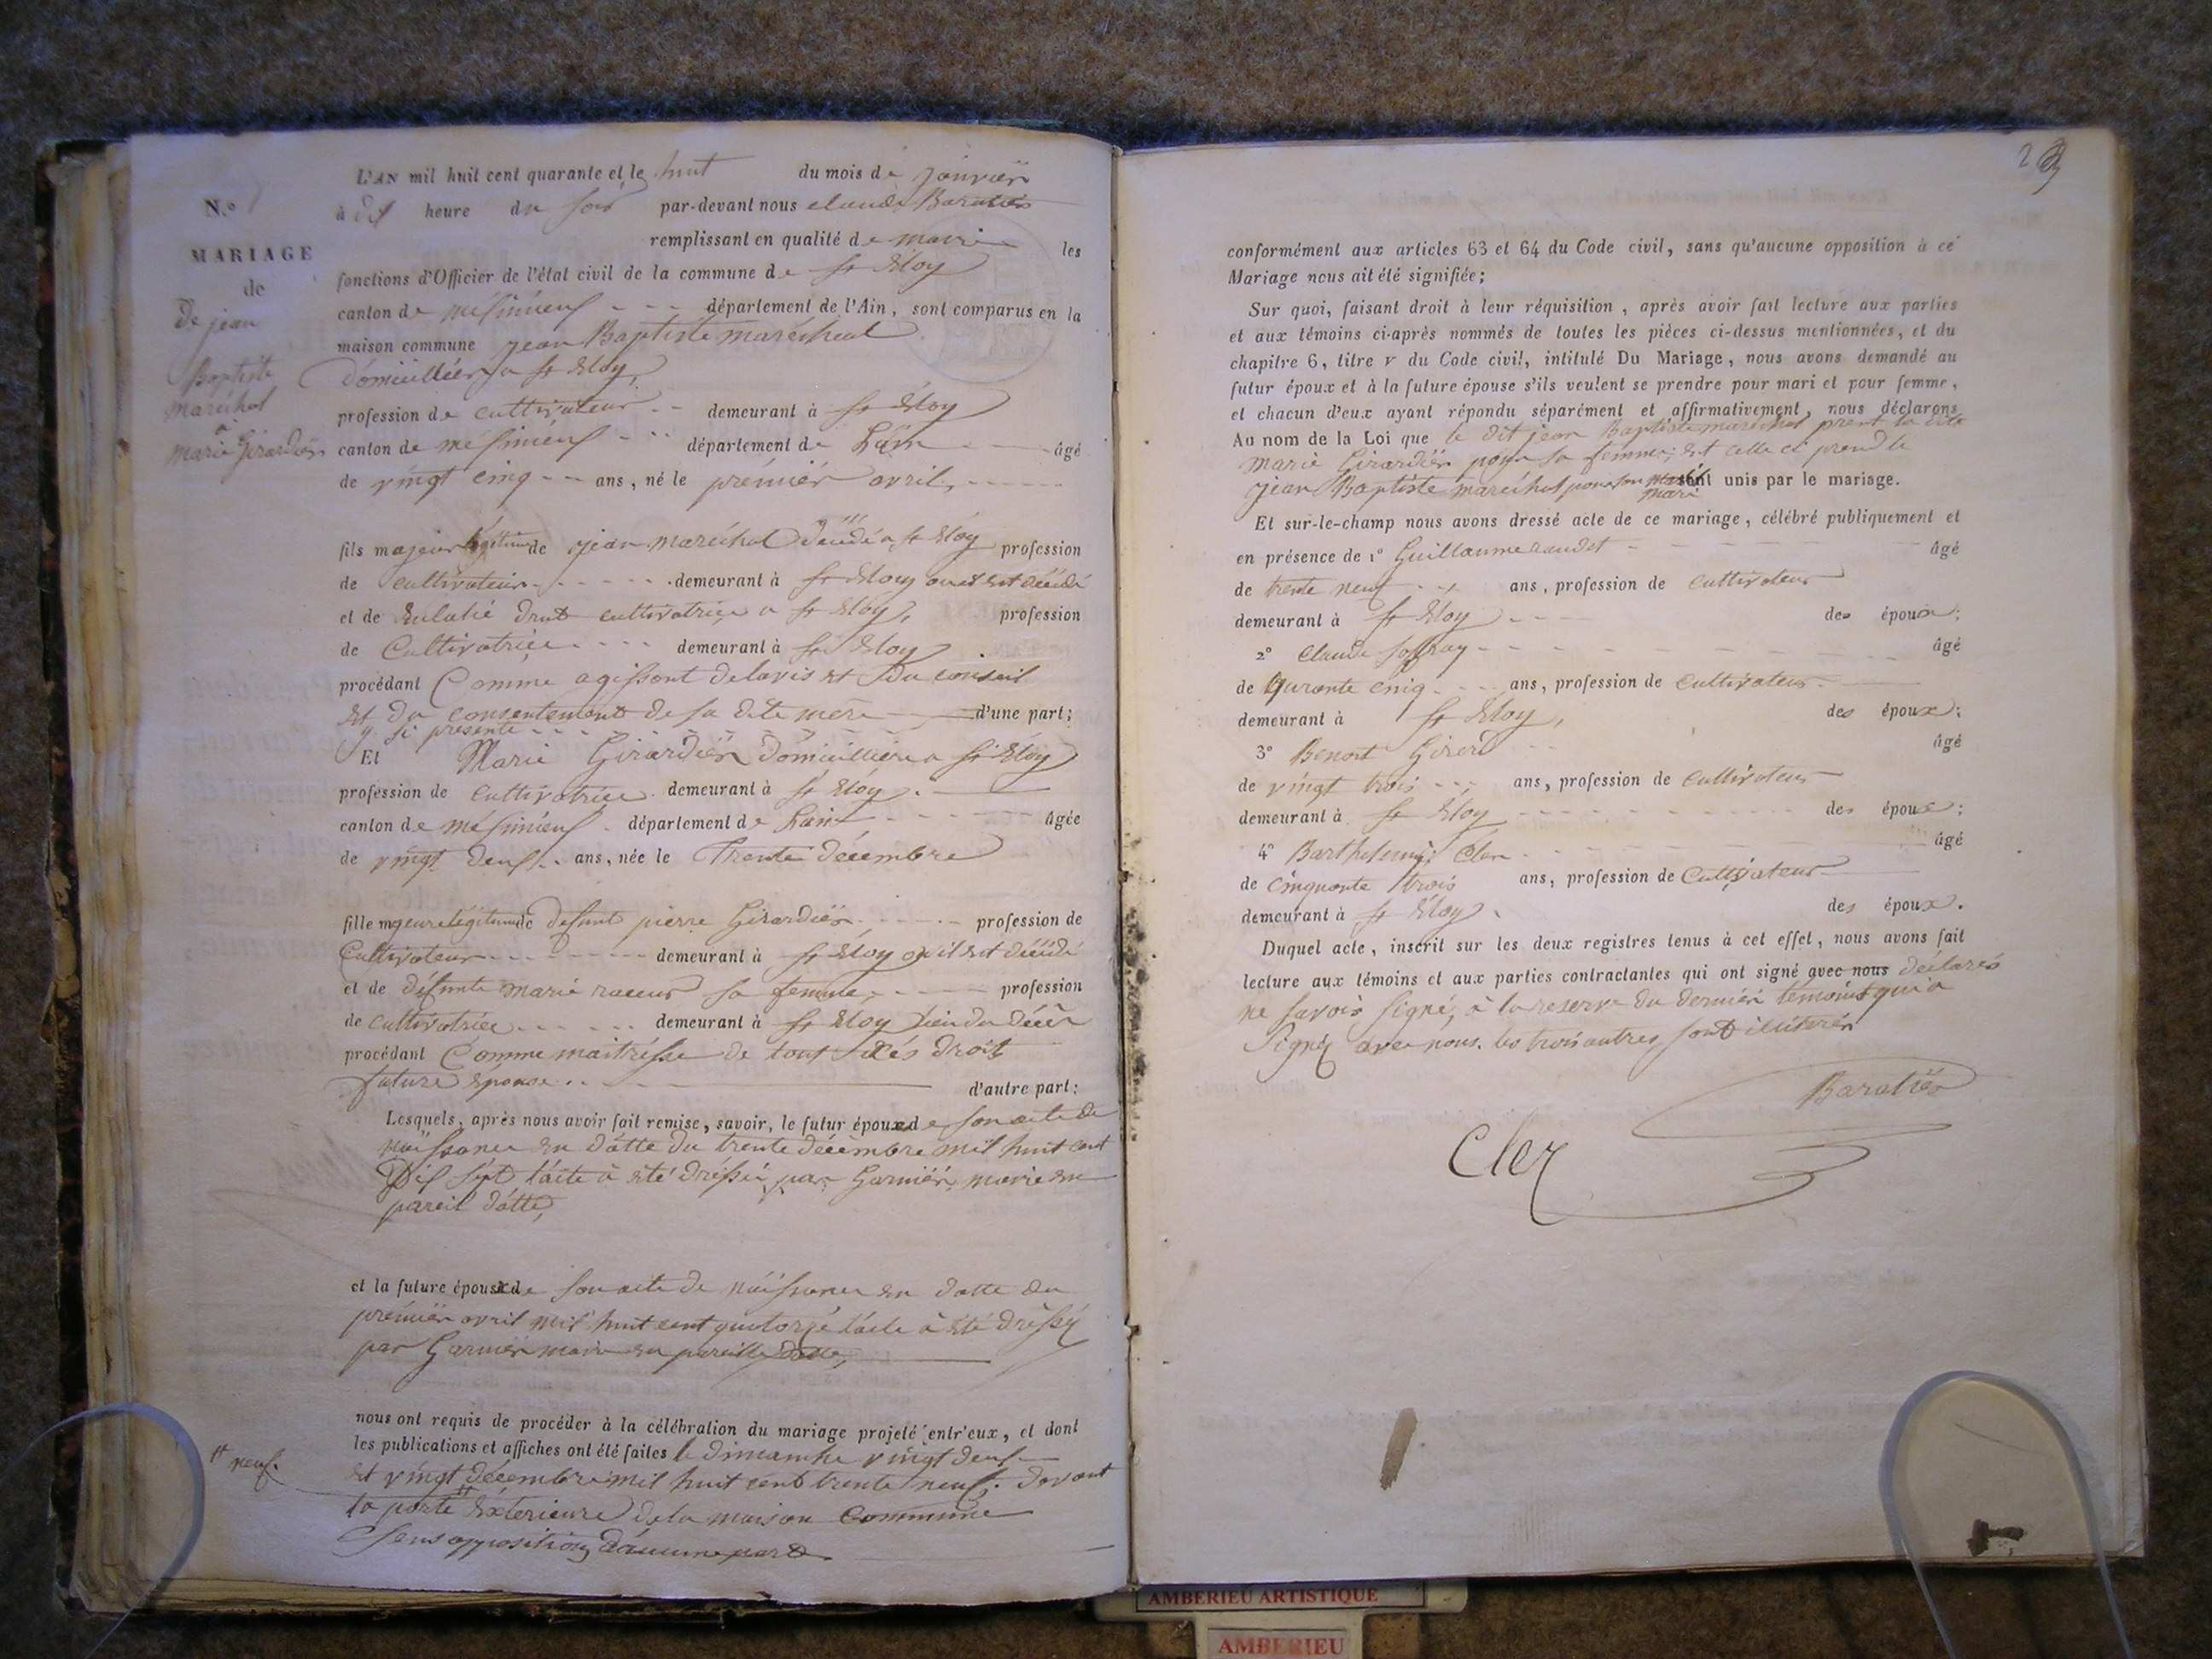 N.º 1
MARIAGE
de
de jean
Baptiste
maréchal
à
marie Girardier
L'AN mil huit cent quarante et le huit du mois de janvier
à dix heure du soir par-devant nous claude Baratier
remplissant en qualité de maire les
fonctions d'Officier de l'état civil de la commune de St Eloy
canton de meximieux département de l'Ain, sont comparus en la
maison commune jean Baptiste maréchal
domicillier a St Eloy,
profession de cultivateur demeurant à St Eloy
canton de meximieux département de Lain âgé
de vingt cinq ans, né le prémiér avril,
fils majeur légitime de jean maréchal décédé a St Eloy profession
de cultivateur demeurant à St Eloy ou il est décédé
et de Eulalie Drut cultivatrice a St Eloy, profession
de Cultivatrice demeurant à St Eloy
procédant Comme agissant delavis et du conseil
et du consentement de sa dite mere d'une part;
y si présente
Et Marie Girardier domicilliere a St Eloy
profession de cultivatrice demeurant à St Eloy
canton de meximieux département de Lain âgée
de vingt deux ans, née le Trente décembre
fille majeure légitime de défunt pierre Girardier profession de
Cultivateur demeurant à St Eloy ou il est décédé
et de défunte marie sa femme, profession
de cultivatrice demeurant à St Eloy lieu du décèr
procédant Comme maitrésse de tout sés droit
future épouse d'autre part:
Lesquels, après nous avoir fait remise, savoir, le futur époux de son acte de
naissance en datte du trente décembre mil huit cent
Dix sept lacte à été dréssé par Garnier maire en
pareil datte,
et la future épouse de son acte de naissance en datte du
prémiér avril mil huit cent quatorze lacte à été dréssé
par Garnier maire en pareille datte,
nous ont requis de procéder à la célébration du mariage projeté entr'eux, et dont
les publications et affiches ont été faites le dimanche vingt deux
et vingt décembre mil huit cent trente neuf. devant
tt neuf.
la porte éxterieure dela maison Commune
sens opposition d'aucune part
2
conformément aux articles 63 et 64 du Code civil, sans qu'aucune opposition à ce
Mariage nous ait été signifiée;
Sur quoi, faisant droit à leur réquisition, après avoir fait lecture aux parties
et aux témoins ci-après nommés de toutes les pièces ci-dessus mentionnées, et du
chapitre 6, titre V du Code civil, intitulé Du Mariage, nous avons demandé au
futur époux et à la future épouse s'ils veulent se prendre pour mari et pour femme,
et chacun d'eux ayant répondu séparément et affirmativement, nous déclarons
Au nom de la Loi que le dit jean Baptiste maréchal prent la dite
marie Girardiér pour sa femme; et celle ci prend le
jean Baptiste maréchal pour son sont unis par le mariage.
mari
Et sur-le-champ nous avons dressé acte de ce mariage, célébré publiquement et
en présence de 1º Guillaume âgé
de trente neuf ans, profession de cultivateur
demeurant à St Eloy des époux;
2º Claude Joffray âgé
de Qurante cinq ans, profession de cultivateur
demeurant à St Eloy, des époux;
3º Benoit Girerd âgé
de vingt trois ans, profession de cultivateur
demeurant à St Eloy des époux;
4º Barthelemy Cler âgé
de cinquante trois ans, profession de Cultivateur
demeurant à St Eloy des époux.
Duquel acte, inscrit sur les deux registres tenus à cet effet, nous avons fait
lecture aux témoins et aux parties contractantes qui ont signé avec nous déclarés
ne savoir signé, à la reserve du dernier témoins qui a
Signé avec nous. les trois autres sont illitérér
Baratier
Cler
AMBERIEU ARTISTIQUE
AMBERIEU